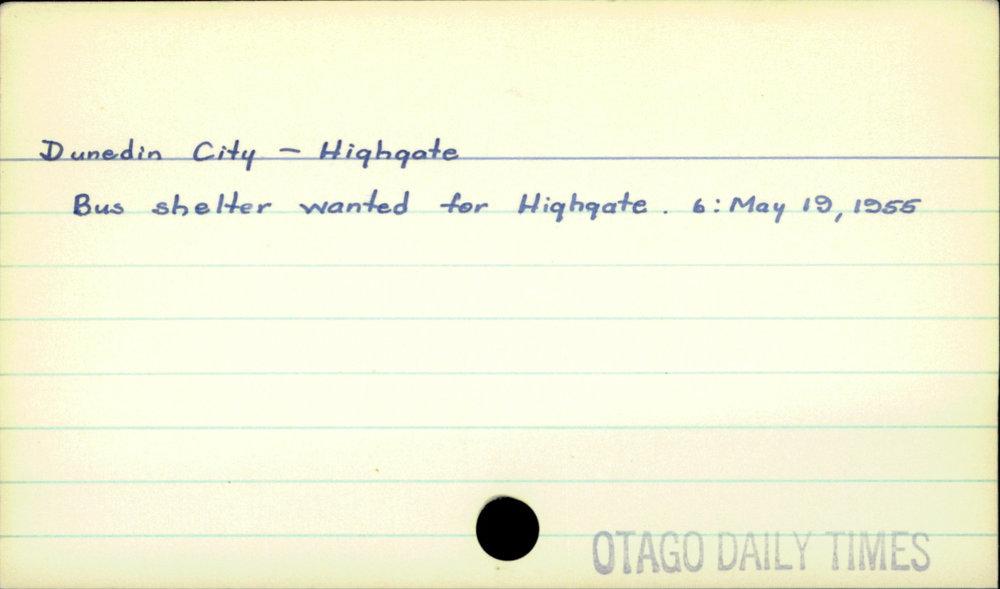 Dunedin City - Highgate
Bus shelter wanted for Highgate. 6: May 19, 1955
OTAGO DAILY TIMES